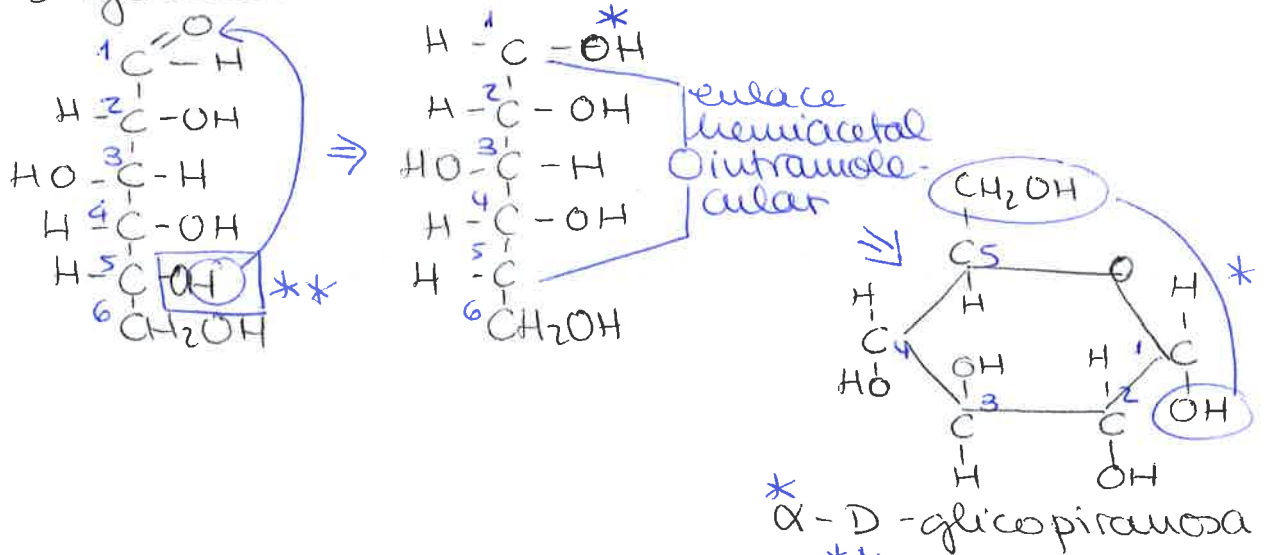 1 C = O
C - H
H - 2 C - OH
HO - 3 C - H
H - 4 C - OH
H - 5 C - OH **
6 CH₂OH
⇒
*
H - 1 C - OH
H - 2 C - OH
HO - 3 C - H
H - 4 C - OH
H - 5 C
6 CH₂OH
enlace
hemiacetal
O intramole-
cular
⇒
CH₂OH
C 5 O
H H H *
C 4 OH H 1 C
HO 3 2 OH
C C
H OH
*
α - D - glicopiranosa